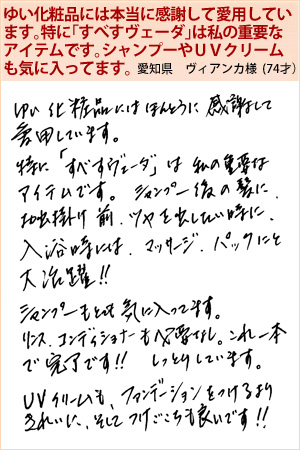 ゆい化粧品には本当に感謝して愛用してい
ます。特に「すべすヴェーダ」は私の重要な
アイテムです。シャンプーやUVクリーム
も気に入ってます。 愛知県 ヴィアンカ様 (74才)
ゆい化粧品にはほんとうに感謝して
愛用しています。
特に「すべすヴェーダ」は私の重要な
アイテムです。シャンプー後の髪に、
お出掛け前、ツヤを出したい時に、
入浴時には、マッサージ、パックにと
大活躍!!
シャンプーもとても気に入ってます。
リンス、コンディショナーも必要なし。これ一本
で完了です!! しっとりしています。
UVクリームも、ファンデーションをつけるより
きれいに、そしてつけごこちも良いです!!